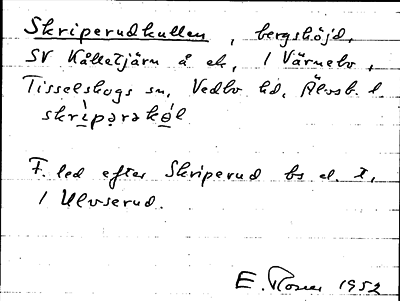 Skriperudkullen, bergshöjd,
SV Kålletjärn å ek, / Värnebo,
Tisselskogs sn, Vedbo hd, Älvsb. l.
skrìpərəkól
F. led efter Skriperud bs el. t,
/ Ulvserud.
E. Rosen 1952